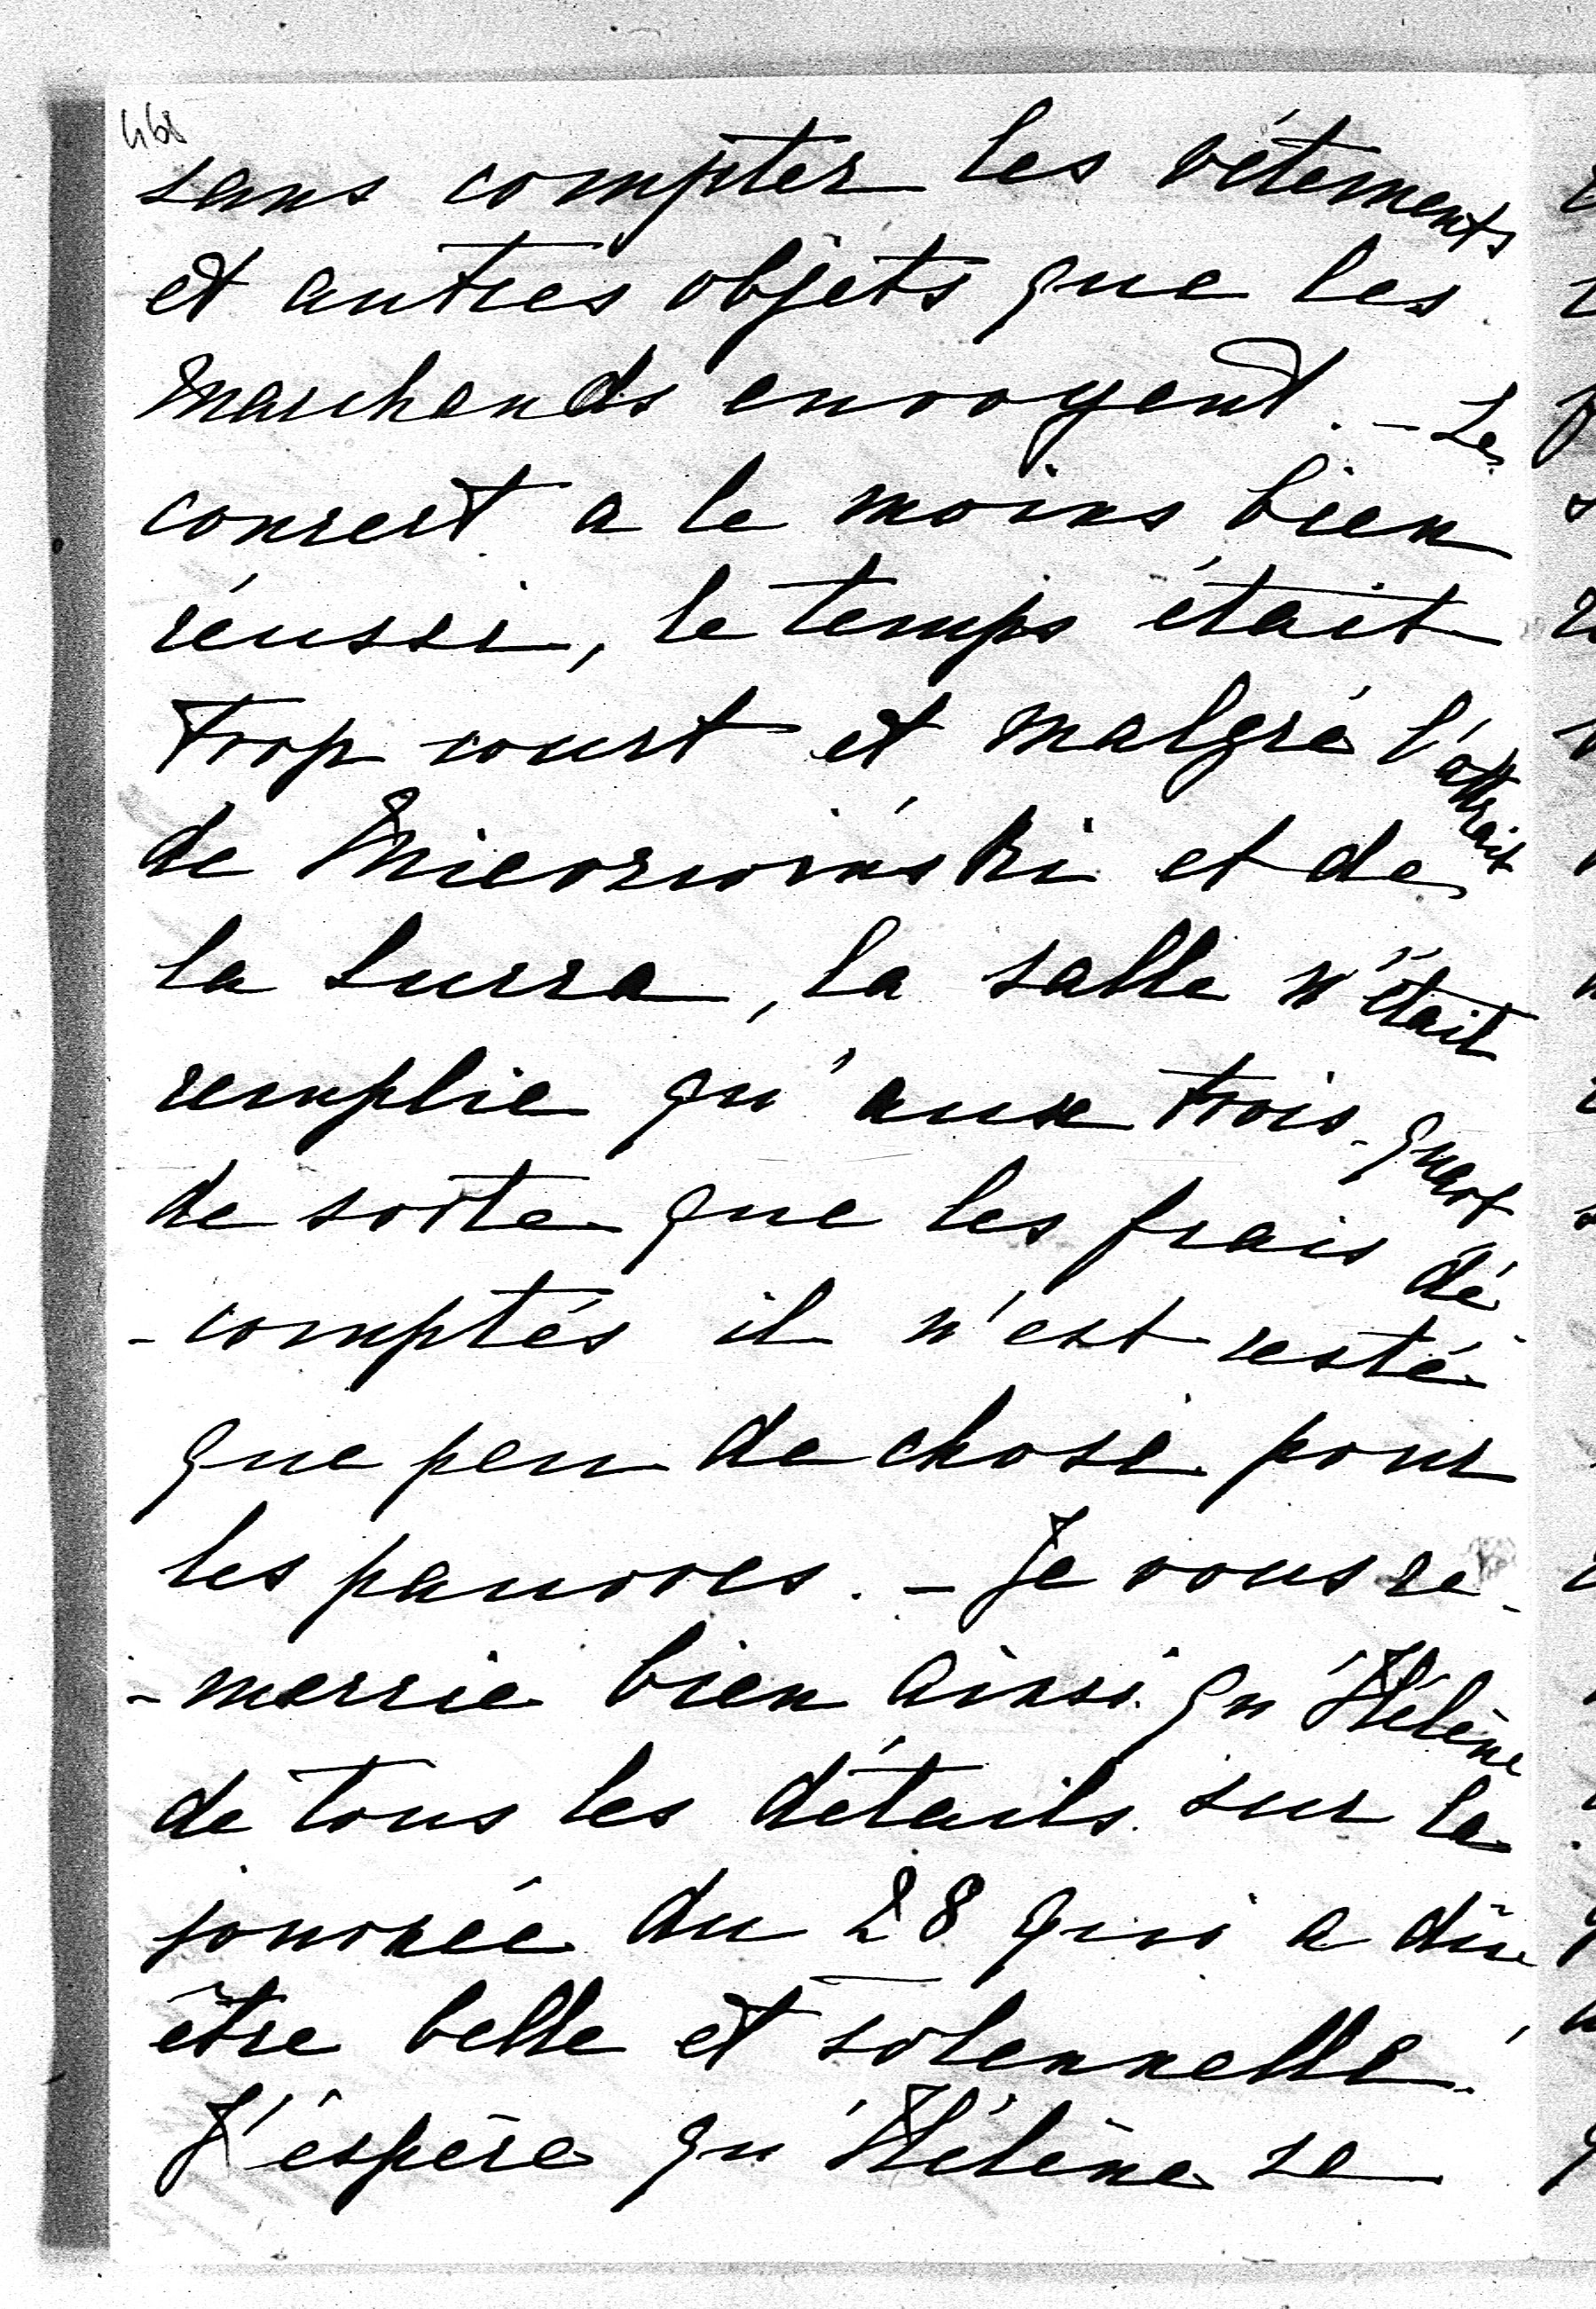 468
sans compter les vêtements
et autres objets que les
marchands envoyent. - Le
concert a le moins bien
réussi, le temps était
trop court et malgré l'attrait
de Mierzwiński et de
la Lucca, la salle n'était
remplie qu'aux trois-quart
de sorte que les frais dé-
-comptés il n'est resté
que peu de chose pour
les pauvres. - Je vous re-
-mercie bien ainsi qu'Hélène
de tous les détails sur la
journée du 28 qui a dû
être belle et solennelle.
J'éspère qu'Hélène se